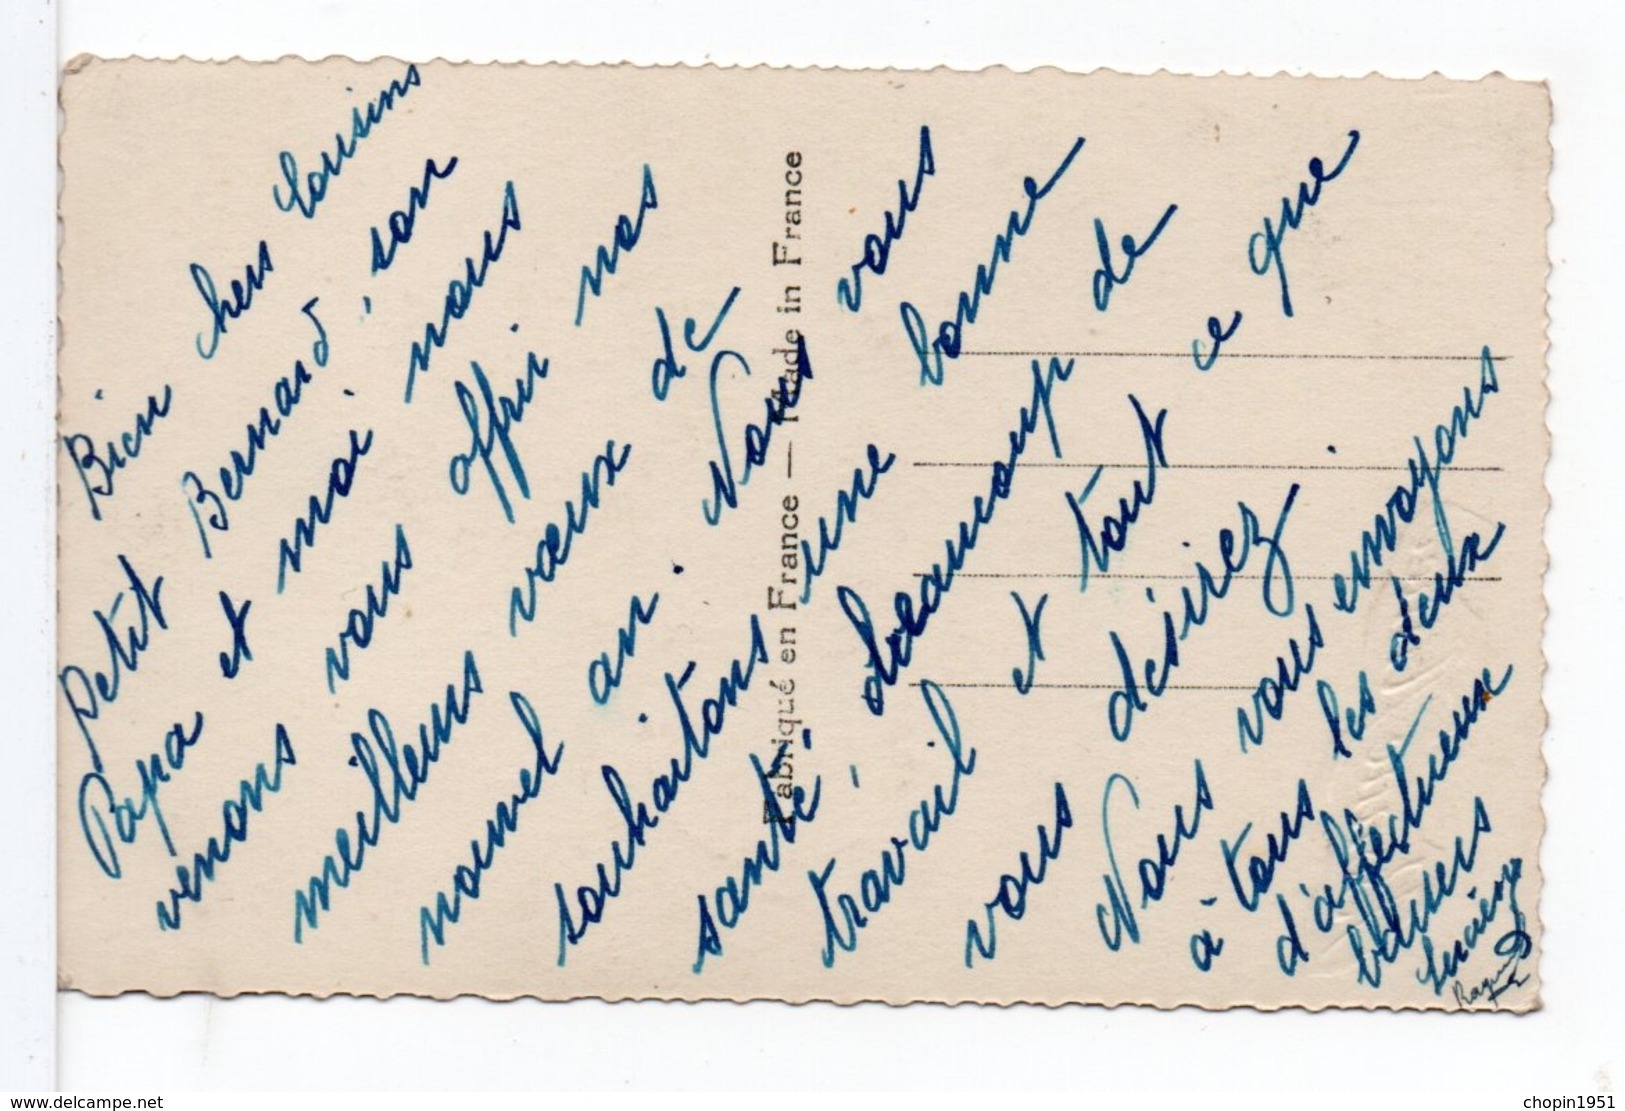 Bien chers Cousins
Petit Bernard, son
Papa et moi nous
venons vous offrir nos
meilleurs vœux de
nouvel an. Nous vous
souhaitons une bonne
santé, beaucoup de
travail et tout ce que
vous désirez.
Nous vous envoyons
à tous les deux
d'affectueux
baisers
Lucienne
Fabriqué en France — Made in France
www.delcampe.net
chopin1951